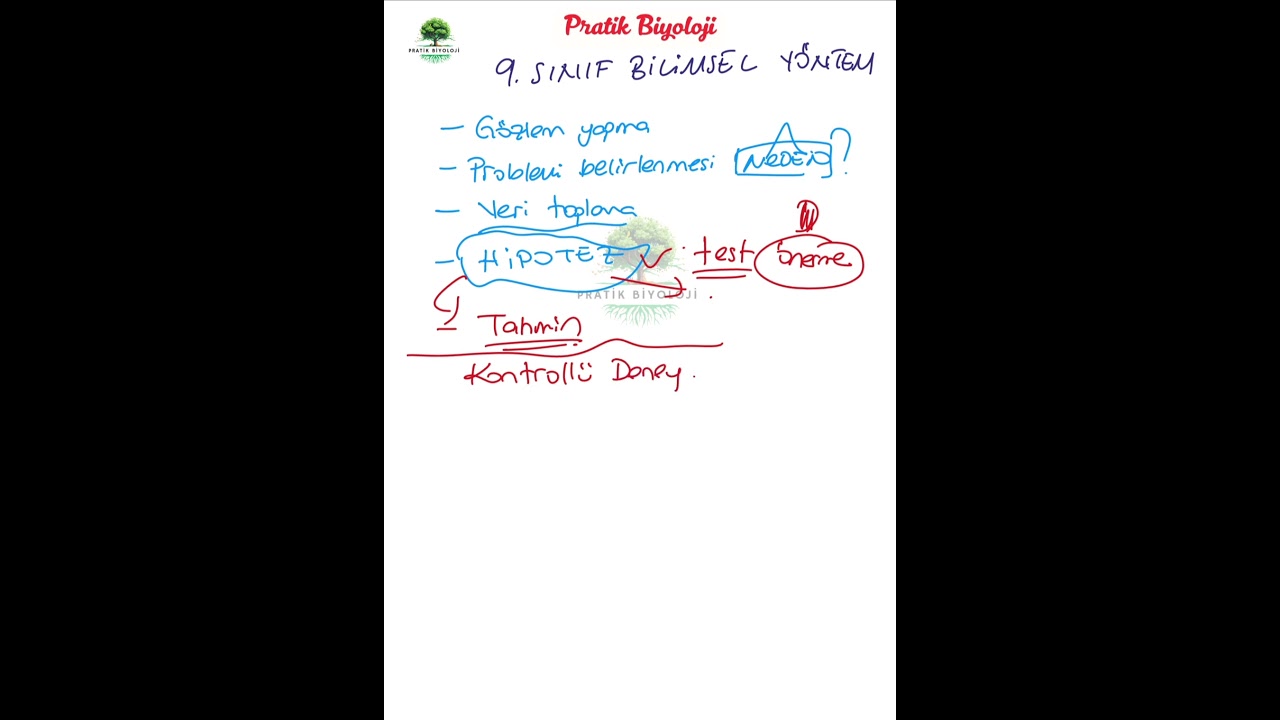 Pratik Biyoloji
PRATİK BİYOLOJİ
9. SINIF BİLİMSEL YÖNTEM
- Gözlem yapma
- Problemi belirlenmesi NEDEN?
- Veri toplama
- HİPOTEZ test önerme
PRATİK BİYOLOJİ
- Tahmin
Kontrollü Deney.